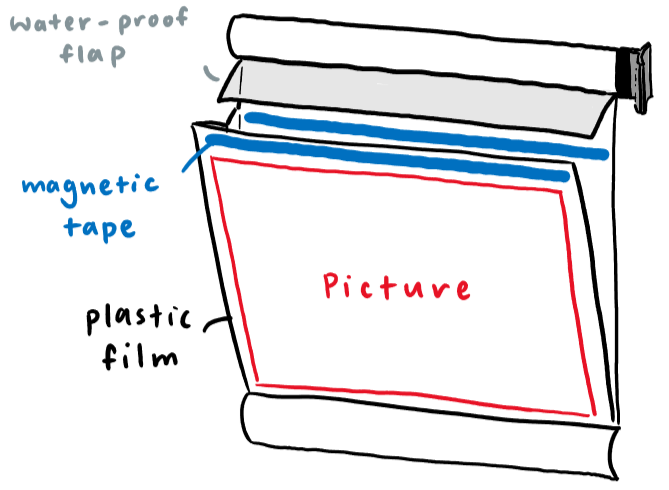 water-proof
flap
magnetic
tape
Picture
plastic
film